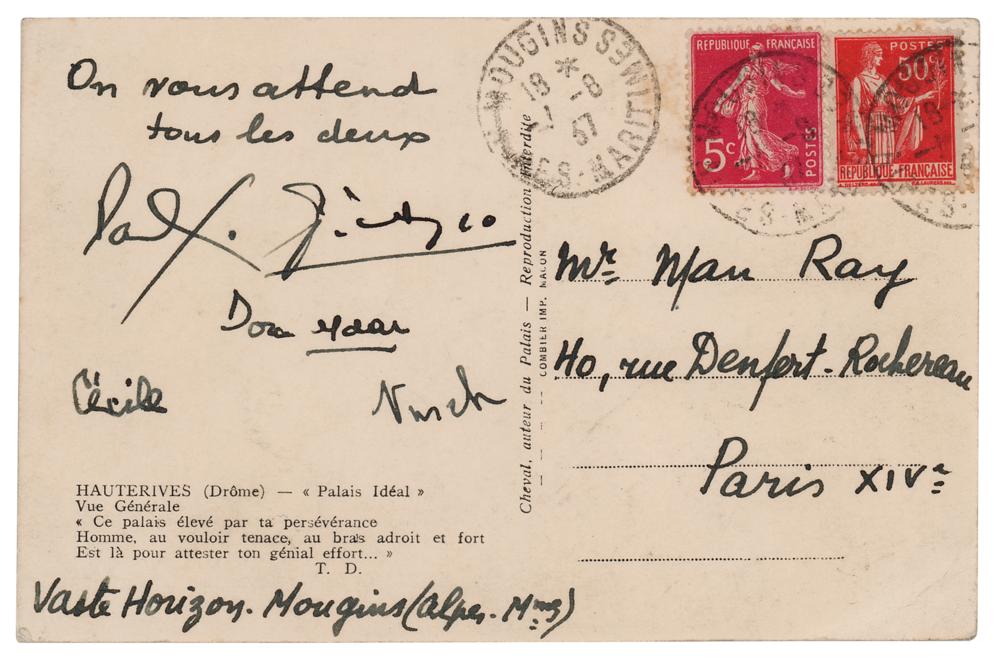 On vous attend
tous les deux
Paul. Picasso
Dora Maar
Cécile
Nusch
HAUTERIVES (Drôme) — « Palais Idéal »
Vue Générale
« Ce palais élevé par ta persévérance
Homme, au vouloir tenace, au bras adroit et fort
Est là pour attester ton génial effort... »
T. D.
Vaste Horizon. Mougins (Alpes. Mmes)
Cheval, auteur du Palais — Reproduction interdite
COMBIER IMP. MACON
MOUGINS
18 * -8
37
ALPES-MARITIMES
REPUBLIQUE FRANÇAISE
5c
POSTES
POSTES
50c
REPUBLIQUE FRANÇAISE
Mr. Man Ray
40, rue Denfert-Rochereau
Paris XIVe